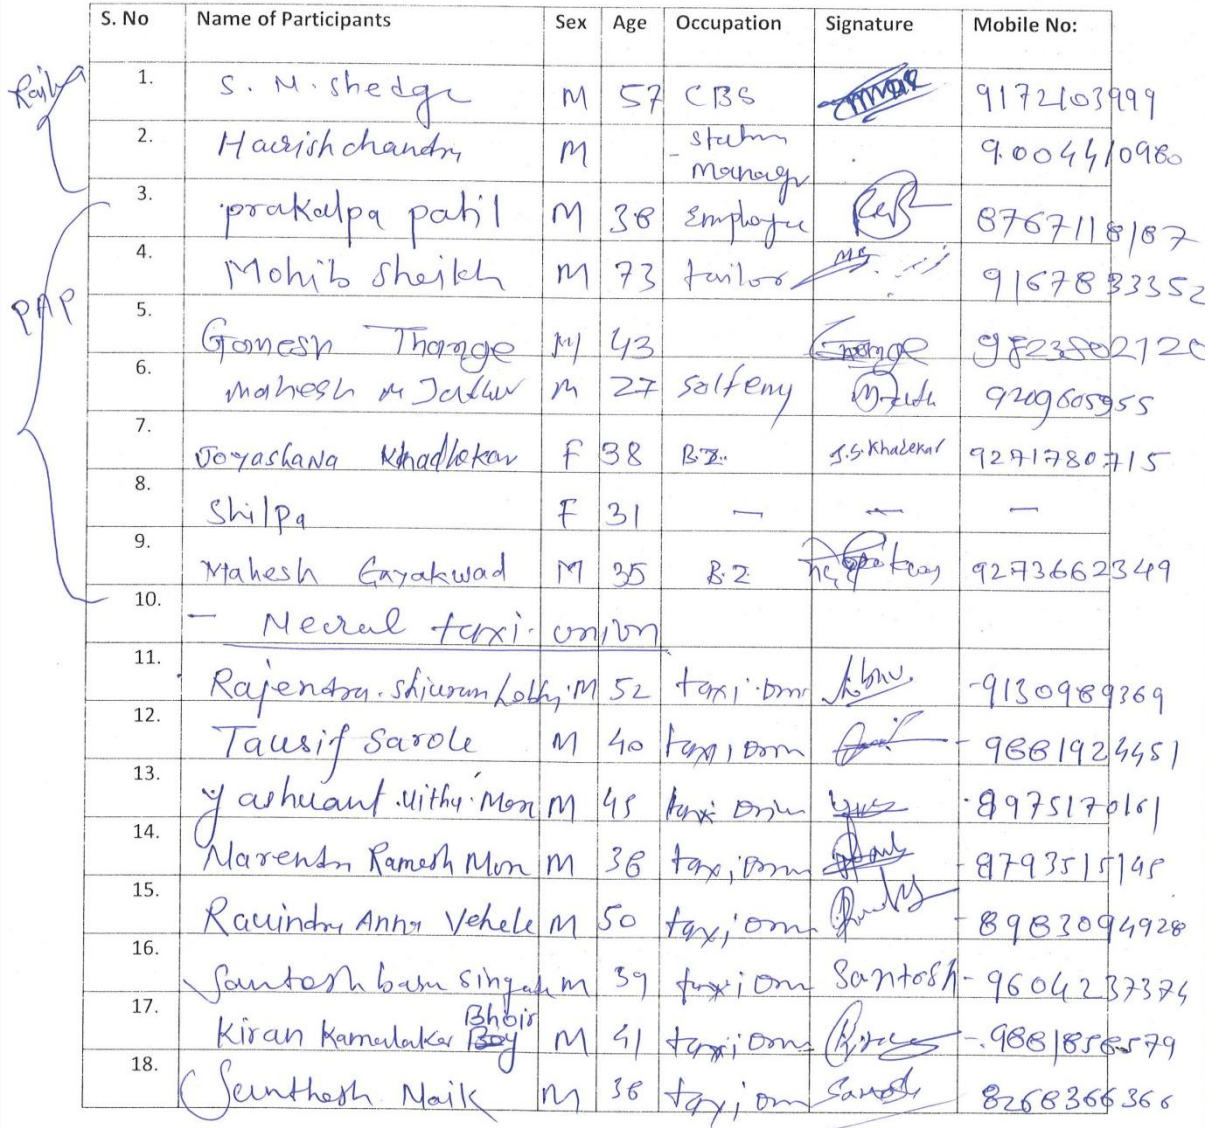 S. No Name of Participants Sex Age Occupation Signature Mobile No:
1. S. M. Shedge M 57 CBS 9172103999
2. Harishchandra M Station Manager 9004410980
3. prakalpa patil M 38 Employee 8767118187
PAP
4. Mohib Sheikh M 73 tailor 9167833352
5. Ganesh Thange M 43 9823802120
6. Mahesh M M 27 9209605955
7. Joyashana Khadlekar F 38 B.Z. J.S.Khadekar 9271780715
8. Shilpa F 31 — — —
9. Mahesh Gayakwad M 35 B.Z 9273662349
10. — Neral taxi union
11. Rajendra. M 52 taxi -9130989369
12. Tausif Sarole M 40 taxi - 9881924451
13. Yashwant. M 45 taxi 8975170161
14. Narendra Ramesh M 38 taxi -8793515145
15. Ravindra Anna Vehele M 50 taxi - 8983094928
16. Santosh basu M 39 taxi Santosh - 9604237374
17. Kiran Kamalakar Bhoir M 41 taxi -9881858579
18. Santhosh Naik M 38 taxi 8268366366